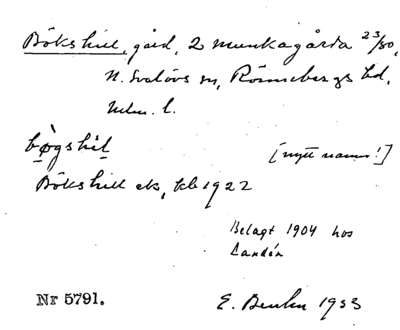 Bökshill, gård, 2 Munkagårda 23/80,
N. Svalövs sn, Rönnebergs hd,
Mlm. l.
bø̀gshìl [nytt namn!]
Bökshill ek, kb 1922
Belagt 1904 hos
Landén
Nr 5791. E. 1953